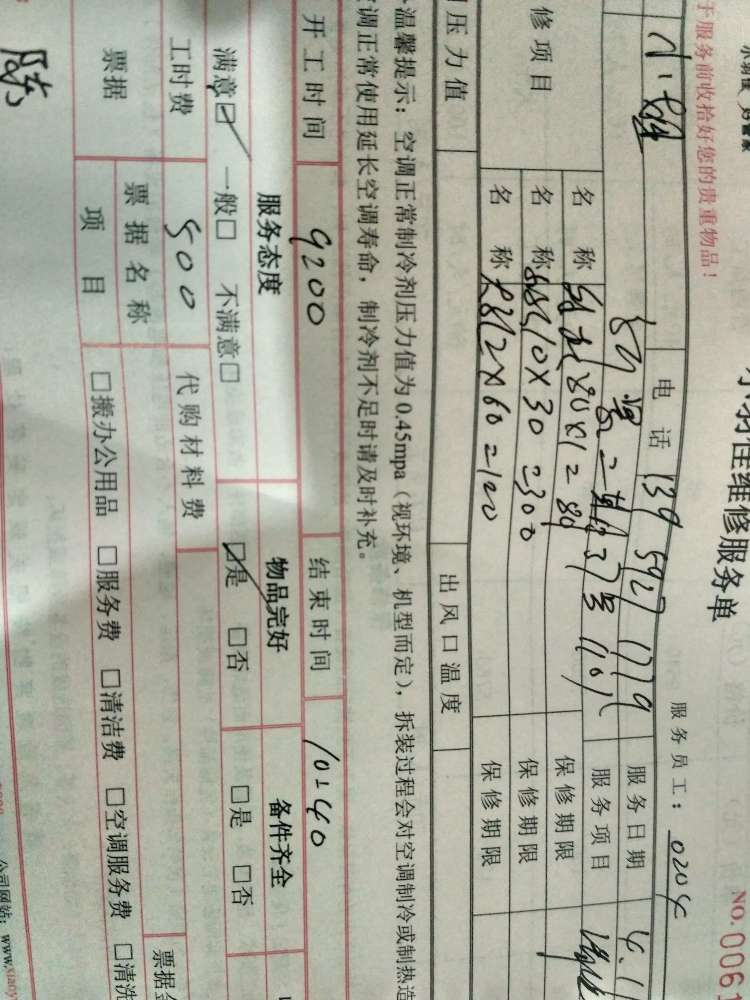 于服务前收拾好您的贵重物品！
小羽佳维修服务单
NO.0061
服务员工： 0204
电话 139 5927 1779
服务日期 4.1
服务项目
修项目
名称 80×12 80
保修期限
名称 10×30=300
保修期限
名称 2×60=120
保修期限
压力值
出风口温度
温馨提示：空调正常制冷剂压力值为0.45mpa（视环境、机型而定），拆装过程会对空调制冷或制热造
调正常使用延长空调寿命，制冷剂不足时请及时补充。
开工时间 9200
结束时间 10:40
服务态度
物品完好
备件齐全
满意☑ 一般□ 不满意□
☑是 □否
□是 □否
工时费 500
代购材料费
票据
票据名称
票据金
项目
□搬办公用品 □服务费 □清洁费 □空调服务费 □清洗
陈
公司网站：www.xiaoy